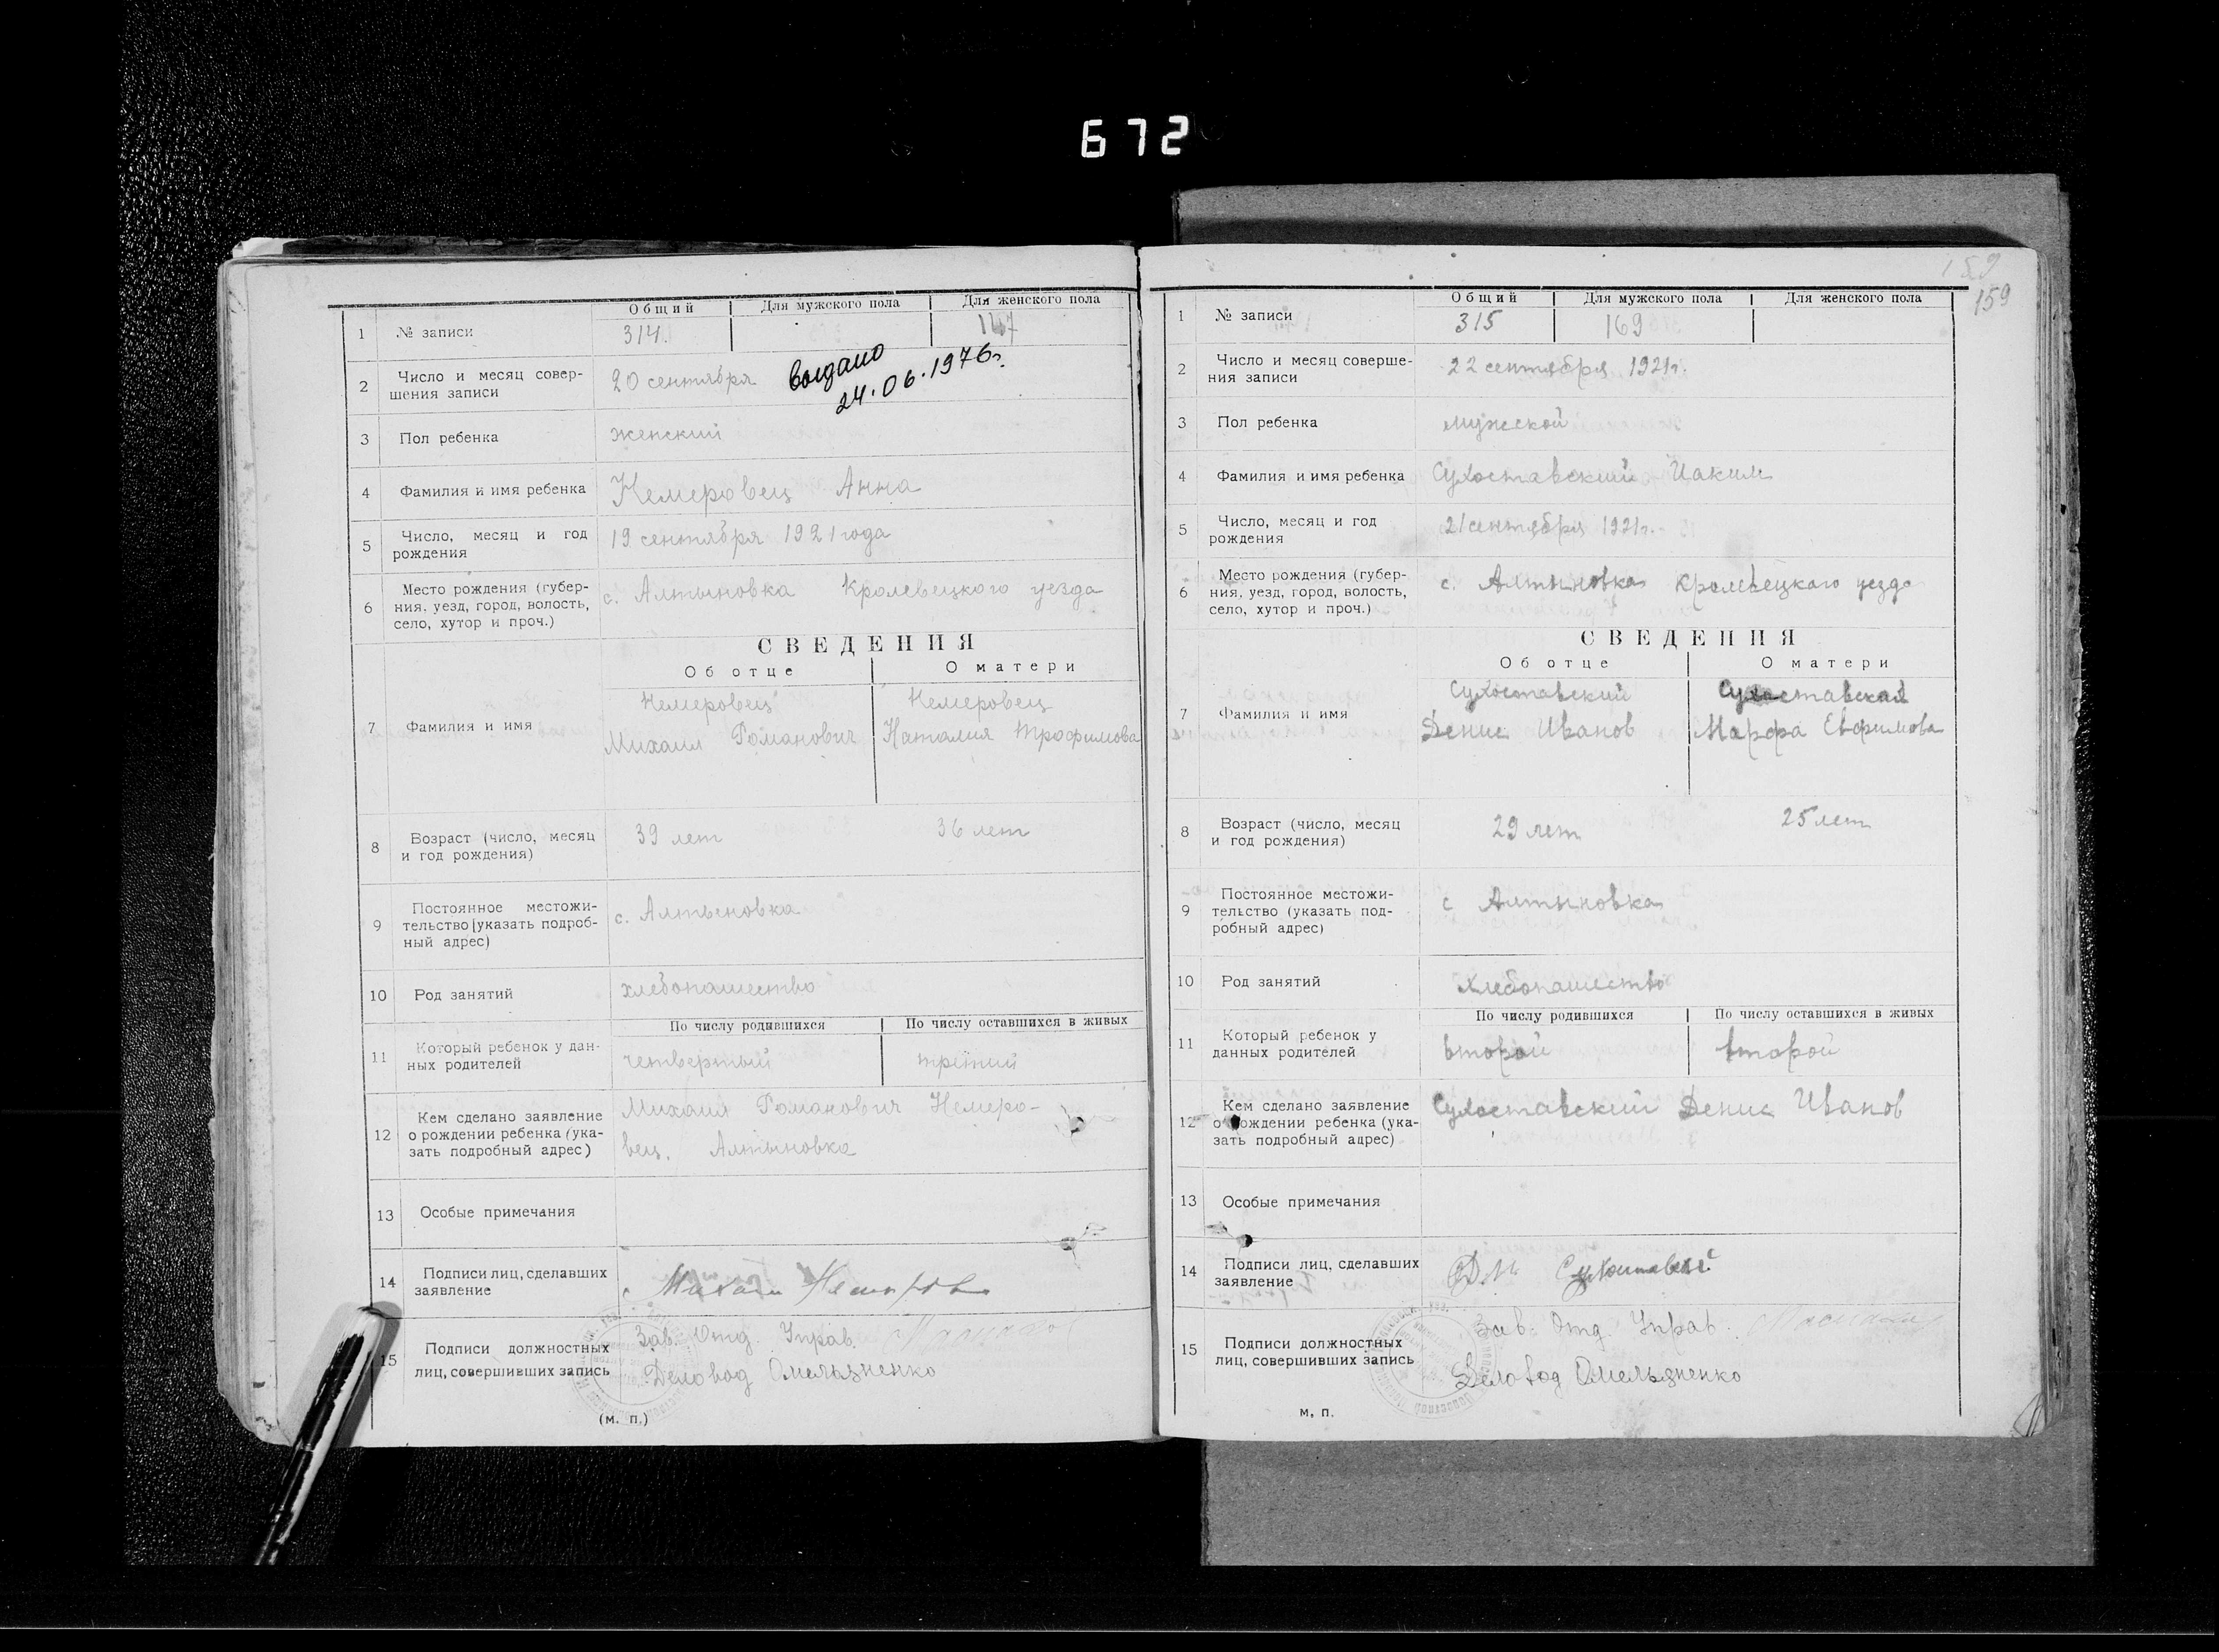 672
Общий Для мужского пола Для женского пола
1 № записи 314. 147
2 Число и месяц совер-
шения записи 20 сентября выдано
24.06.1976г.
3 Пол ребенка женский
4 Фамилия и имя ребенка Немеровец Анна
5 Число, месяц и год
рождения 19 сентября 1921 года
6 Место рождения (губер-
ния, уезд, город, волость,
село, хутор и проч.) с. Алтыновка Кролевецкого уезда
СВЕДЕНИЯ
Об отце О матери
7 Фамилия и имя
Немеровец Немеровец
Михаил Романович Наталия Трофимова
8 Возраст (число, месяц
и год рождения) 39 лет 36 лет
9 Постоянное местожи-
тельство (указать подроб-
ный адрес) с. Алтыновка
10 Род занятий хлебопашество
По числу родившихся По числу оставшихся в живых
11 Который ребенок у дан-
ных родителей четвертый третий
12 Кем сделано заявление
о рождении ребенка (ука-
зать подробный адрес)
Михаил Романович Немеро-
вец. Алтыновка
13 Особые примечания
14 Подписи лиц, сделавших
заявление Михаил
15 Подписи должностных
лиц, совершивших запись
Зав. Отд. Управ.
Деловод Омельяненко
(м. п.)
159
159
Общий Для мужского пола Для женского пола
1 № записи 315 169
2 Число и месяц соверше-
ния записи 22 сентября 1921г.
3 Пол ребенка мужской
4 Фамилия и имя ребенка Сухоставский Иаким
5 Число, месяц и год
рождения 21 сентября 1921г.
6 Место рождения (губер-
ния, уезд, город, волость,
село, хутор и проч.) с. Алтыновка Кролевецкого уезда
СВЕДЕНИЯ
Об отце О матери
7 Фамилия и имя
Сухоставский Сухоставская
Денис Иванов Марфа Евфимова
8 Возраст (число, месяц
и год рождения) 29 лет 25 лет
9 Постоянное местожи-
тельство (указать под-
робный адрес) с Алтыновка
10 Род занятий хлебопашество
По числу родившихся По числу оставшихся в живых
11 Который ребенок у
данных родителей второй второй
12 Кем сделано заявление
о рождении ребенка (ука-
зать подробный адрес) Сухоставский Денис Иванов
13 Особые примечания
14 Подписи лиц, сделавших
заявление
15 Подписи должностных
лиц, совершивших запись
Зав. Отд. Управ.
Деловод Омельяненко
м. п.